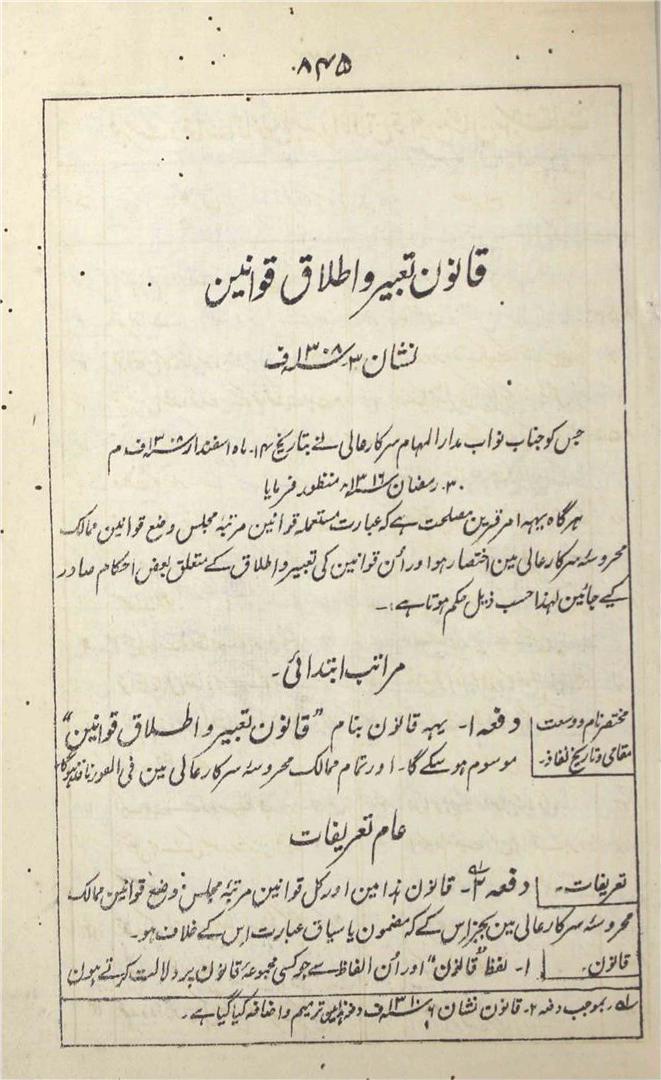 ۸۴۵
قانون تعبیر و اطلاق قوانین
نشان ۳ ۱۳۰۸ ف
جس کو جناب نواب مدار المہام سرکار عالی نے بتاریخ ۱۴۔ ماہ اسفندار ۱۳۰۸ ف م
۳۰۔ رمضان ۱۳۱۶ھ منظور فرمایا
ہرگاہ یہہ امر قرین مصلحت ہے کہ عبارت مستعملہ قوانین مرتبۂ مجلس وضع قوانین ممالک
محروسۂ سرکار عالی مین اختصار ہو اور اُن قوانین کی تعبیر و اطلاق کے متعلق بعض احکام صادر
کیے جائین لہذا حسب ذیل حکم ہوتا ہے:۔
مراتب ابتدائی۔
مختصر نام و وسعت مقامی و تاریخ نفاذ۔
دفعہ ۱۔ یہہ قانون بنام "قانون تعبیر و اطلاق قوانین"
موسوم ہو سکے گا۔ اور تمام ممالک محروسۂ سرکار عالی مین فی الفور نافذ ہوگا
عام تعریفات
تعریفات۔
دفعہ ۲۔ قانون ہذا مین اور کل قوانین مرتبۂ مجلس وضع قوانین ممالک
محروسۂ سرکار عالی مین بجز اس کے کہ مضمون یا سیاق عبارت اس کے خلاف ہو۔
قانون۔
۱۔ لفظ "قانون" اور اُن الفاظ سے جو کسی مجموعۂ قانون پر دلالت کرتے ہون
بموجب دفعہ ۲۔ قانون نشان ۱۳۱۰ ف ترمیم و اضافہ کیا گیا ہے۔